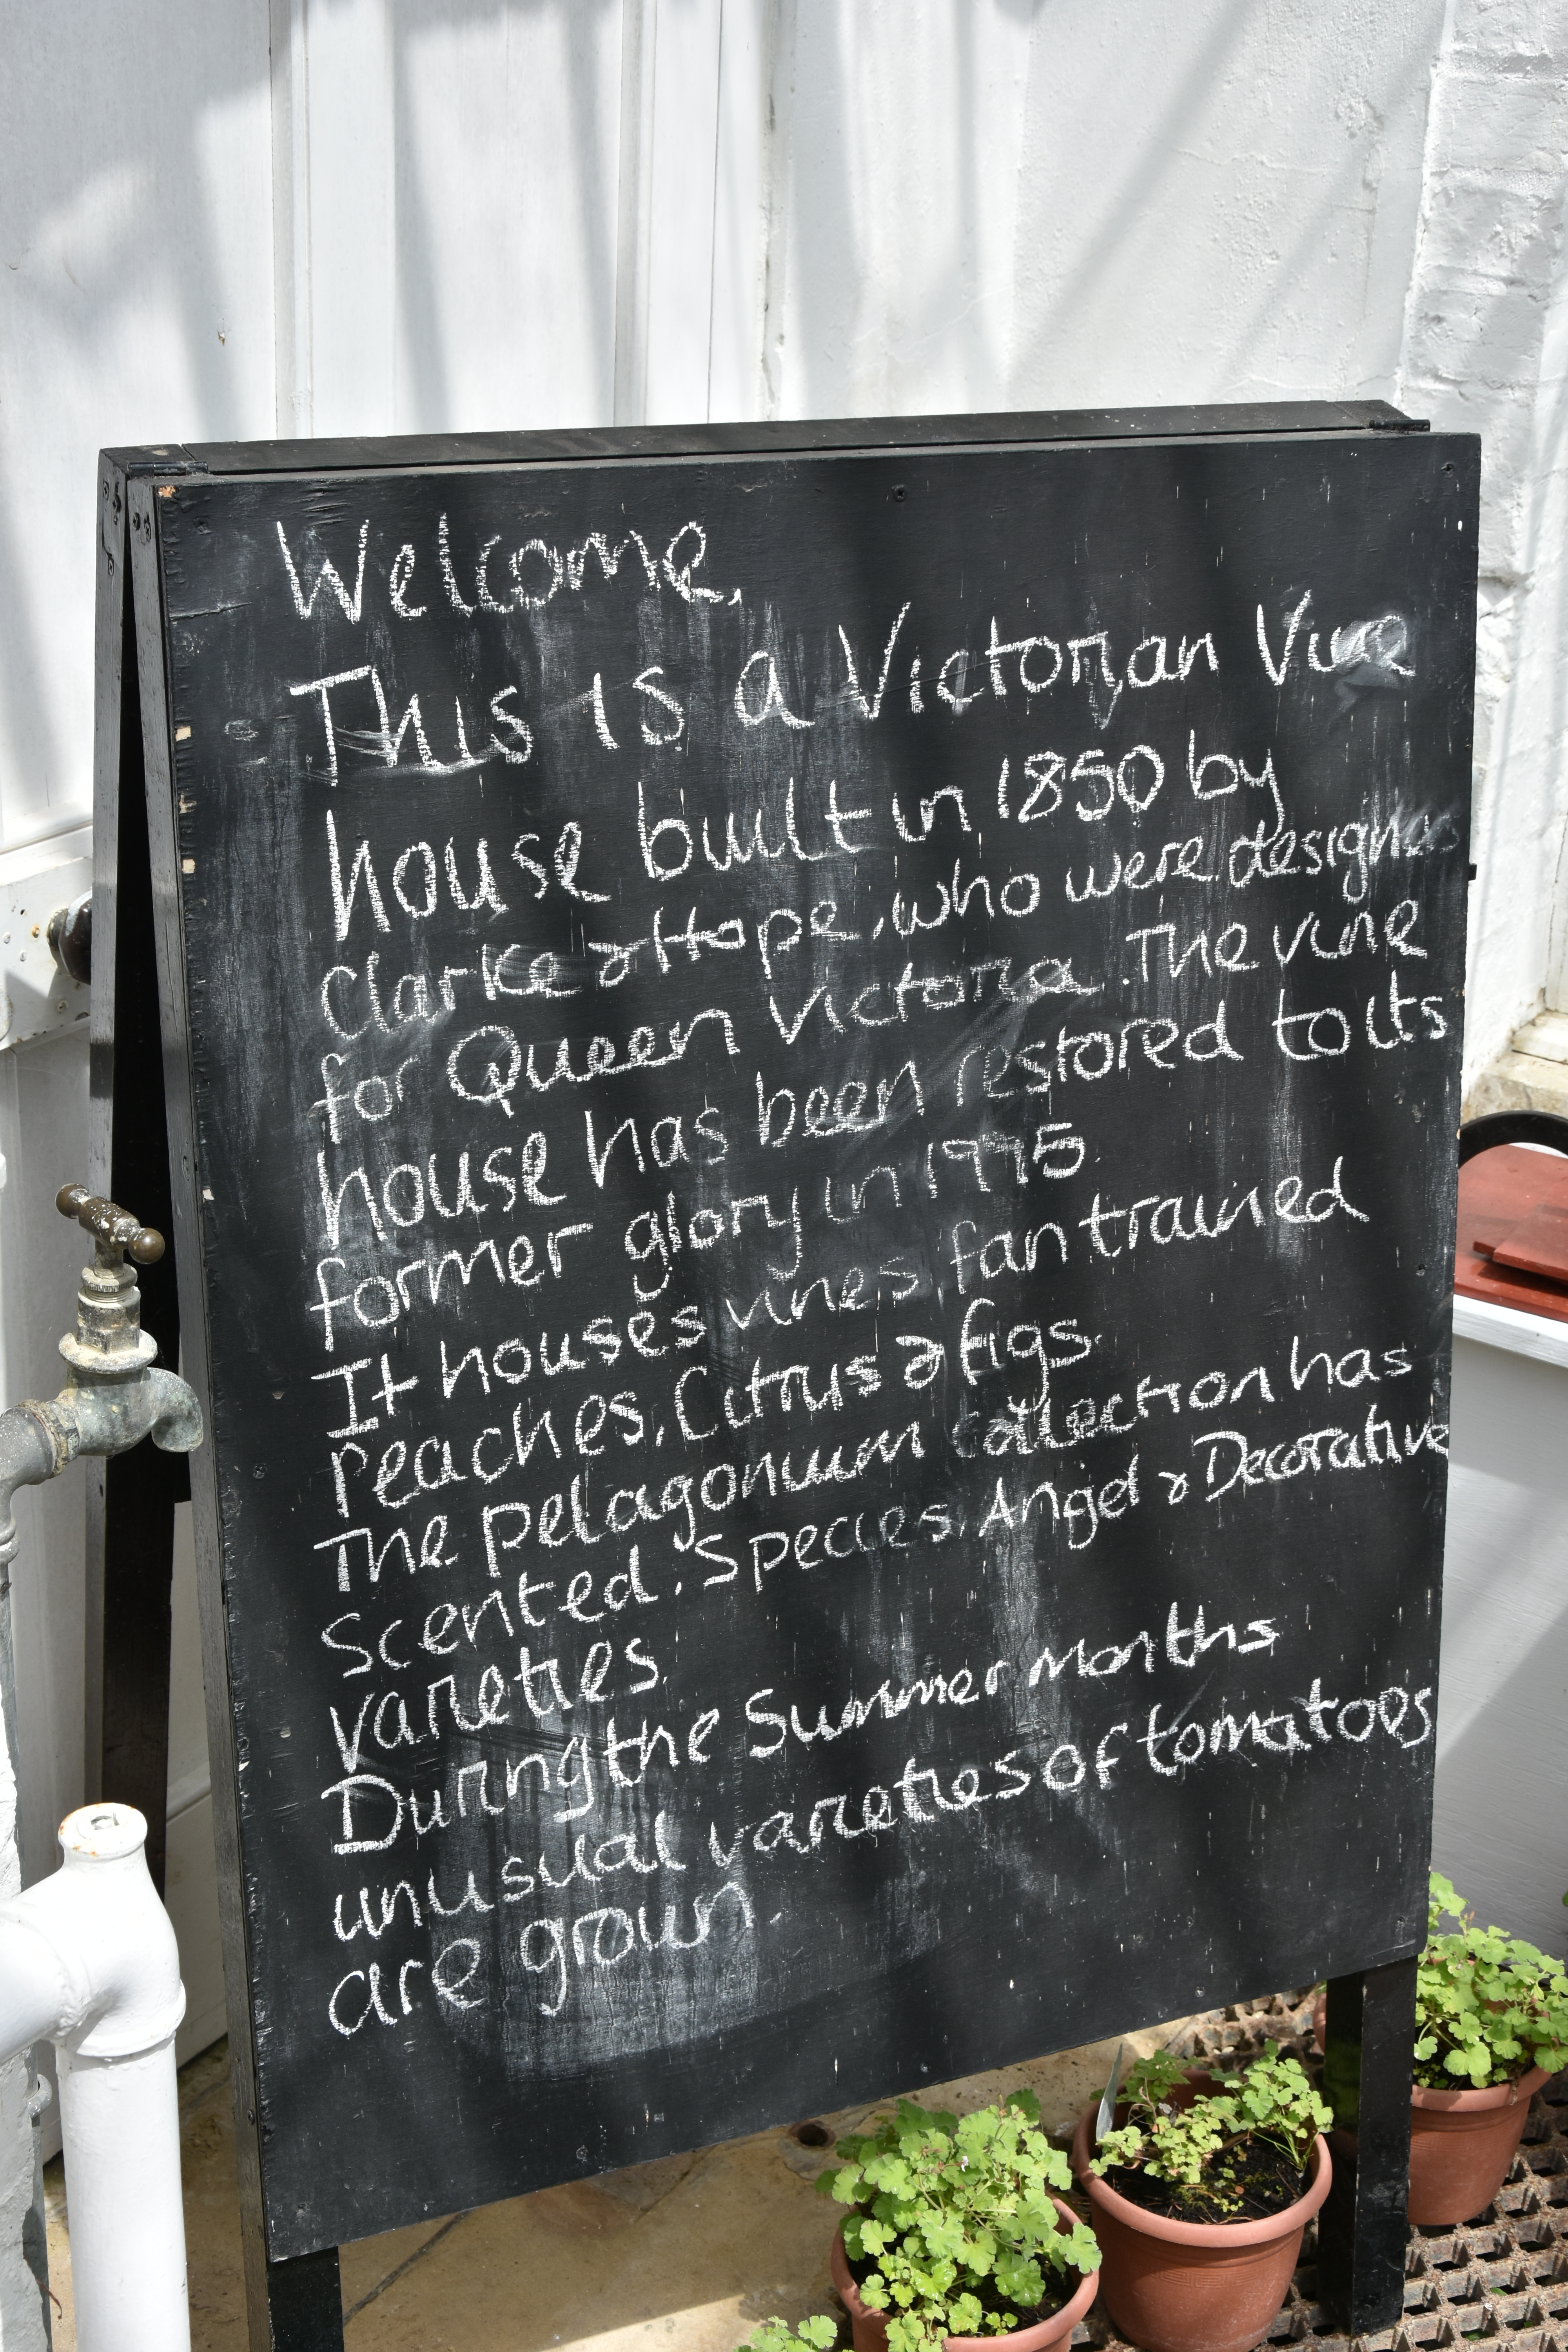 Welcome,
This is a Victorian Vine
house built in 1850 by
Clarke & Hope, who were designers
for Queen Victoria. The vine
house has been restored to its
former glory in 1975
It houses vines, fan trained
peaches, Citrus & figs.
The pelagonium collection has
scented, Species, Angel & Decorative
varieties.
During the Summer Months
unusual varieties of tomatoes
are grown.